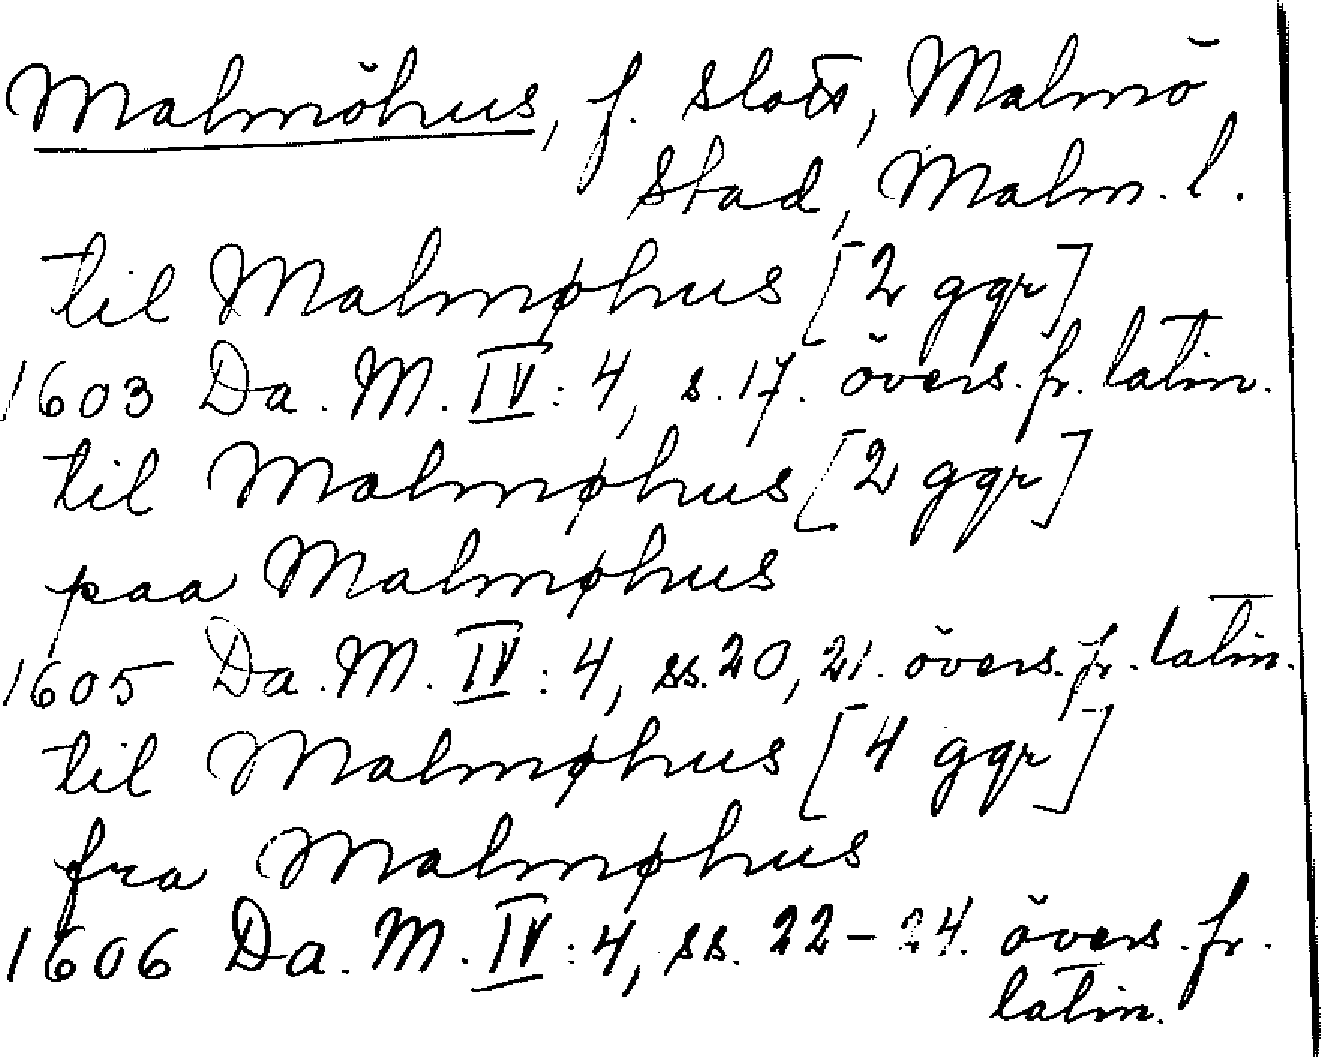 Malmöhus, f. slott, Malmö
stad, Malm. l.
til Malmøhus [2 ggr]
1603 Da. M. IV: 4, s. 17. övers. fr. latin.
til Malmøhus [2 ggr]
paa Malmøhus
1605 Da. M. IV: 4, ss. 20, 21. övers. fr. latin.
til Malmøhus [4 ggr]
fra Malmøhus
1606 Da. M. IV: 4, ss. 22-24. övers. fr.
latin.